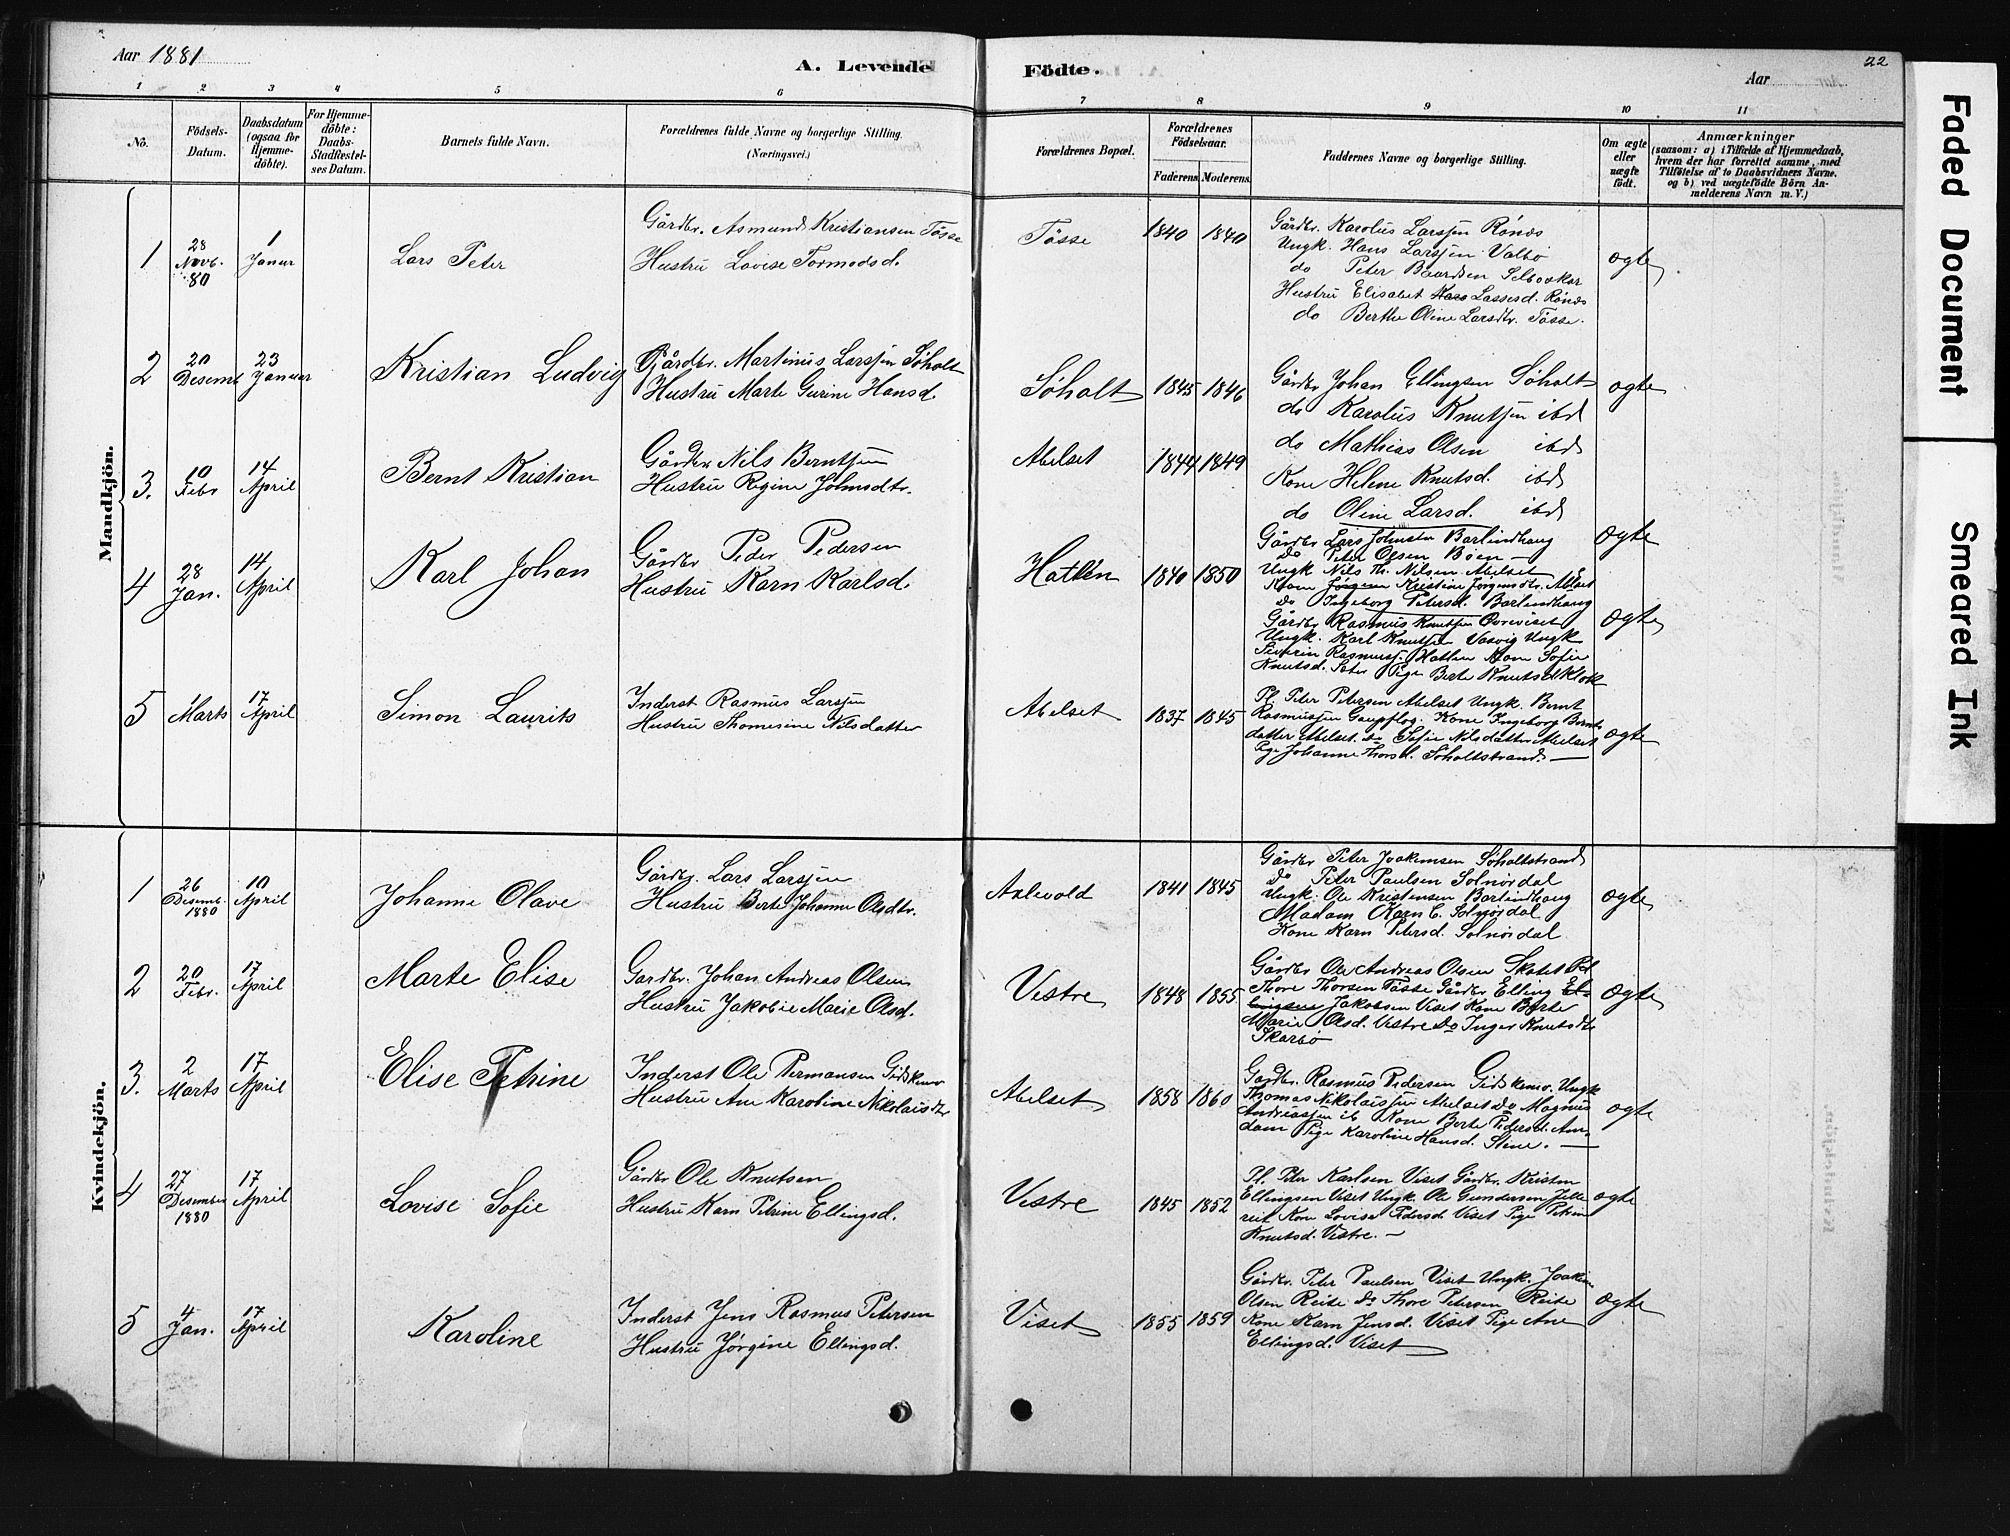 Aar 1881
A. Levende Födte.
Aar
22
Faded Document
Smeared Ink
1 2 3 4 5 6 7 8 9 10 11
No.
Födsels-Datum.
Daabsdatum (ogsaa for Hjemme-döbte).
For Hjemme-döbte: Daabs-Stadfæstel-ses Datum.
Barnets fulde Navn.
Forældrenes fulde Navne og borgerlige Stilling.
(Næringsvei.)
Forældrenes Bopæl.
Forældrenes Födselsaar.
Faderens Moderens
Faddernes Navne og borgerlige Stilling.
Om ægte eller uægte födt.
Anmærkninger
(saasom: a) i Tilfælde af Hjemmedaab,
hvem der har forrettet samme, med
Tilföielse af to Daabsvidners Navne.
og b) ved uægtefödte Börn An-
melderens Navn m. V.)
Mandkjön.
1 28 Novb. 80 1 Januar Lars Peter
Gårdbr. Asmund Kristiansen Tösse
Hustru Lovise Tormodsd.
Tösse 1840 1840
Gårdbr. Karolus Larssen Rönds
Ungk. Hans Larssen Valbö
do Peter Baardsen
Hustru Elisabet Lassesd. Rönds
do Berthe Oline Larsdtr. Tösse.
ægte
2 20 Desemb 23 Januar Kristian Ludvig
Gjårdbr. Martinus Larssen Söholt
Hustru Marte Gurine Hansd.
Söholt 1845 1846
Gårdbr Johan Ellingsen Söholt
do Karolus Knutsen ibd
do Mathias Olsen ibd
Kone Helene Knutsd. ibd
do Oline Larsd. ibd
ægte
3. 10 Febr 14 April Bernt Kristian
Gårdbr. Nils Berntsen
Hustru Regine Johnsdtr.
Abelset 1844 1849
Gårdbr Lars Johnsen Barlindhaug
Do Peter Olsen Böen
Ungk Nils Th. Nilsen Abelset
Kone Kristine Jörgensdtr. Abelset
Do Ingeborg Petersd. Barlindhaug
ægte
4 28 Jan. 14 April Karl Johan
Gårdbr Peder Pedersen
Hustru Karn Karlsd.
Hatlen 1840 1850
Gårdbr Rasmus Knutsen
Ungk. Karl Knutsen Vasvig Ungk
Severin Rasmuss. Hatlen Kone Sofie
Knutsd. Pige Berte Knutsd
ægte
5 Marts 17 April Simon Laurits
Inderst Rasmus Larssen
Hustru Thomesine Nilsdatter
Abelset 1837 1845
Pl. Peter Petersen Abelset Ungk. Bernt
Rasmussen Gaupflog. Kone Ingeborg Bernts
datter Abelset. Do Sofie Nilsdatter Abelset
Pige Johanne Thorsd. Söholtstrand.
ægte
Kvindekjön.
1 26 Desemb. 1880 10 April Johanne Olave
Gårdbr. Lars Larssen
Hustru Berte Johanne Olsdtr.
1841 1845
Gårdbr Peter Joakimsen Söholtstrand
Do Peter Paulsen Solnördal
Ungk. Ole Kristensen Barlindhaug
Madam Karn C. Solnördal
Kone Karn Petersd. Solnördal
ægte
2 20 Febr. 17 April Marte Elise
Gardbr. Johan Andreas Olsen
Hustru Jakobie Marie Olsd.
Vestre 1848 1855
Gårdbr Ole Andreas Olsen Pl
Thore Thorsen Tösse Gårdbr Elling El-
lingsen Jakobsen Viset Kone Berte
Marie Olsd. Vestre Do Inger Knutsdtr
Skarbö
ægte
3. 2 Marts 17 April Elise Petrine
Inderst Ole Permansen
Hustru Ane Karoline Nikolaisdtr
Abelset 1858 1860
Gardbr. Rasmus Pedersen Ungk
Thomas Nikolaissen Abelset Do Magnus
Andreassen ib Kone Berte Pedersd. Am-
dam Pige Karoline Hansd. Stene.
ægte
4 27 Desember 1880 17 April Lovise Sofie
Gårdbr Ole Knutsen
Hustru Karn Petrine Ellingsd.
Vestre 1845 1852
Pl. Peter Karlsen Viset Gårdbr. Kristen
Ellingsen Viset Ungk. Ole Gundersen
Kone Lovise Pedersd. Viset Pige Petrine
Knutsd. Vestre.
ægte
5 4 Jan. 17 April Karoline
Inderst Jens Rasmus Petersen
Hustru Jörgine Ellingsd.
Viset 1855 1859
Gårdbr. Peter Paulsen Viset Ungk. Joakim
Olsen Reite Do Thore Petersen Reite
Kone Karn Jensd. Viset Pige Ane
Ellingsd. Viset
ægte